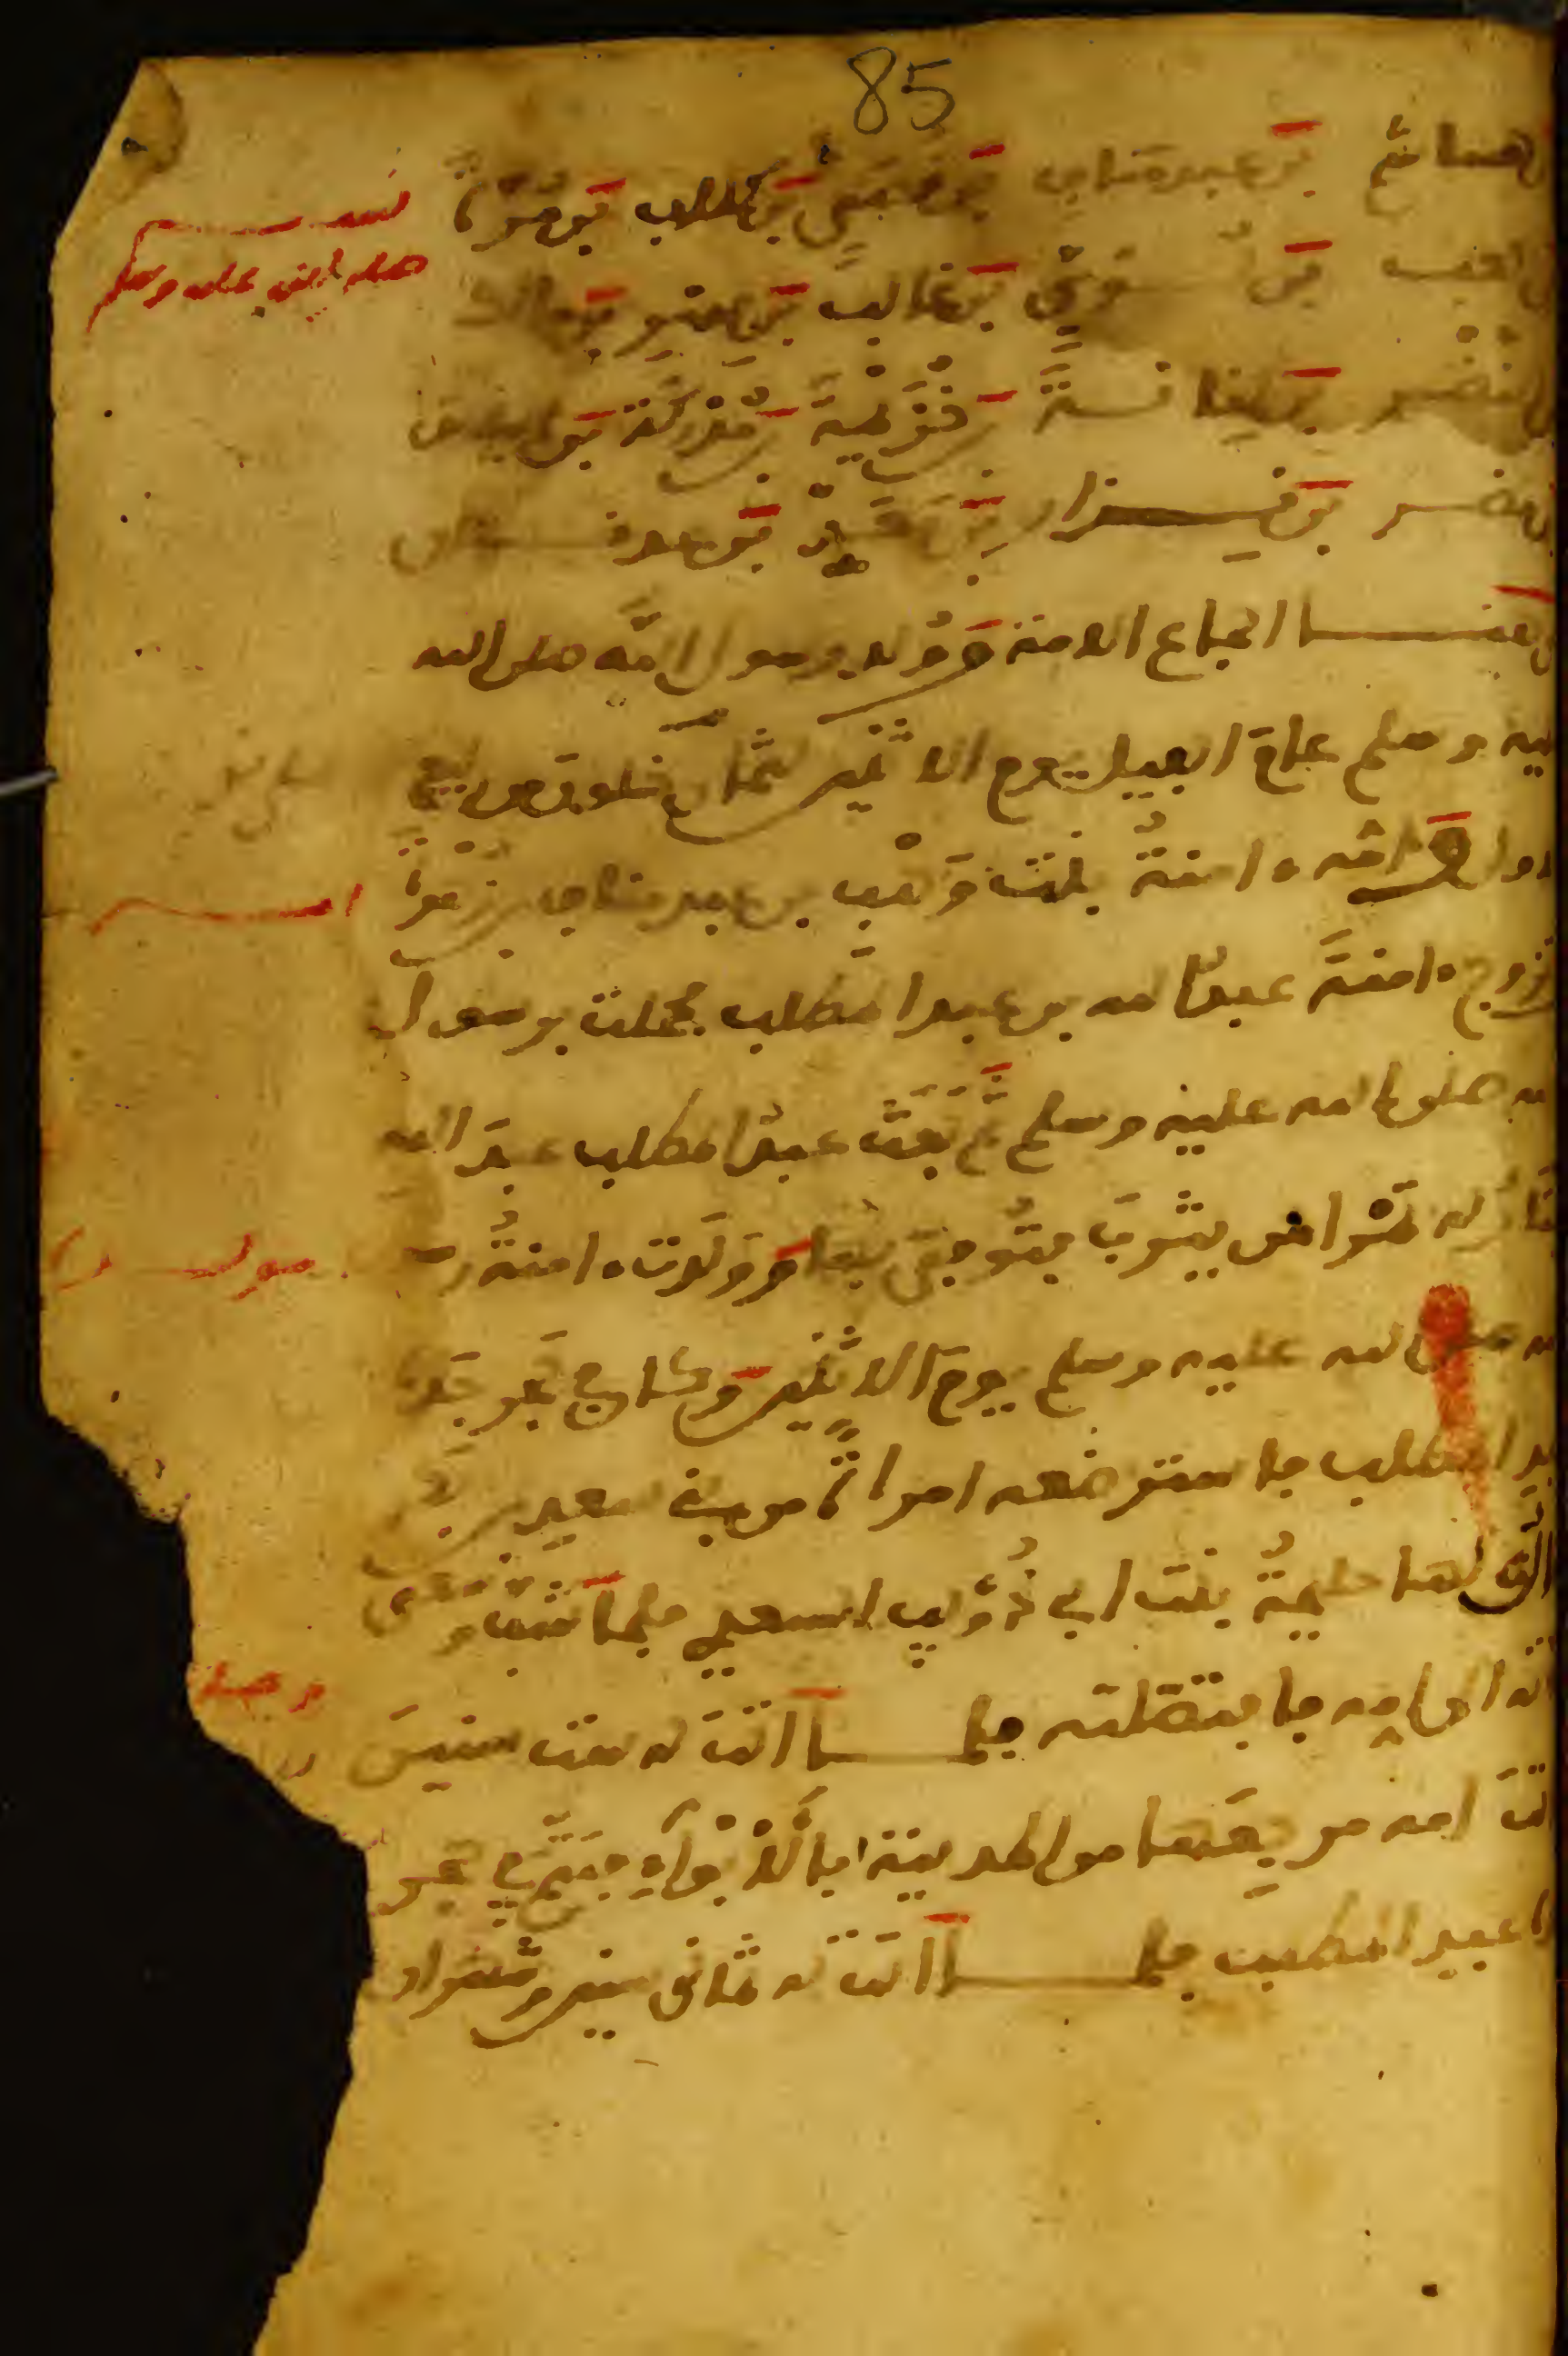 85
هاشم بن عبد مناف بن قصي بن كلاب بن مرة
نسبه
صلى الله عليه وسلم
كعب بن لؤي بن غالب بن فهر بن مالك
النضر بن كنانة بن خزيمة بن مدركة بن الياس
مضر بن نزار بن معد بن عدنان
هنا اجماع الامة وولد رسول الله صلى الله
عليه وسلم عام الفيل يوم الاثنين لثمان خلون من ربيع
الاول امه ءامنة بنت وهب بن عبد مناف بن زهرة
تزوج ءامنة عبد الله بن عبد المطلب فحملت برسول
الله صلى الله عليه وسلم ثم بعث عبد المطلب عبد الله
يمتار له تمرا من يثرب فتوفي بها وولدت ءامنة رسول
مولد
الله صلى الله عليه وسلم يوم الاثنين وكان في حجر جده
عبد المطلب فاسترضعه امراة من بني سعد بن بكر
يقال لها حليمة بنت ابي ذؤيب السعدي فلما شب وسعى
اتته الى امه فافتصلته فلما اتت له ست سنين
ماتت امه مرجعها من المدينة بالابواء فيتم في حجر
عبد المطلب فلما اتت له ثماني سنين وشهران